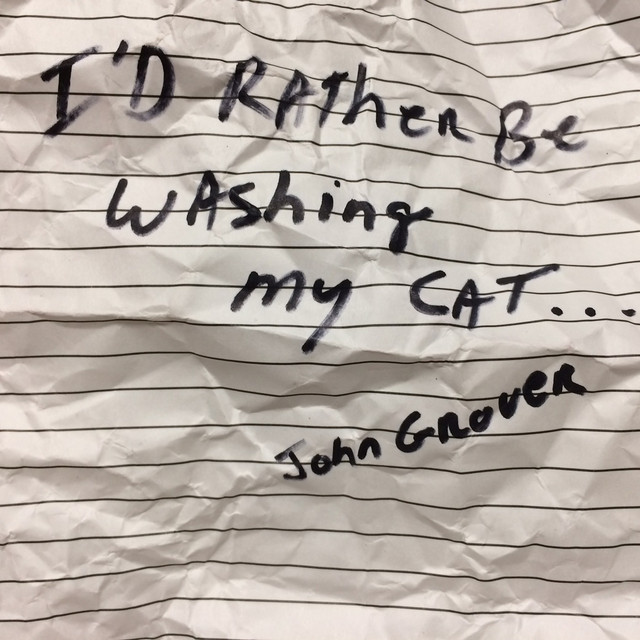 I'D RATher Be
WAShing
my CAT...
John GROVER